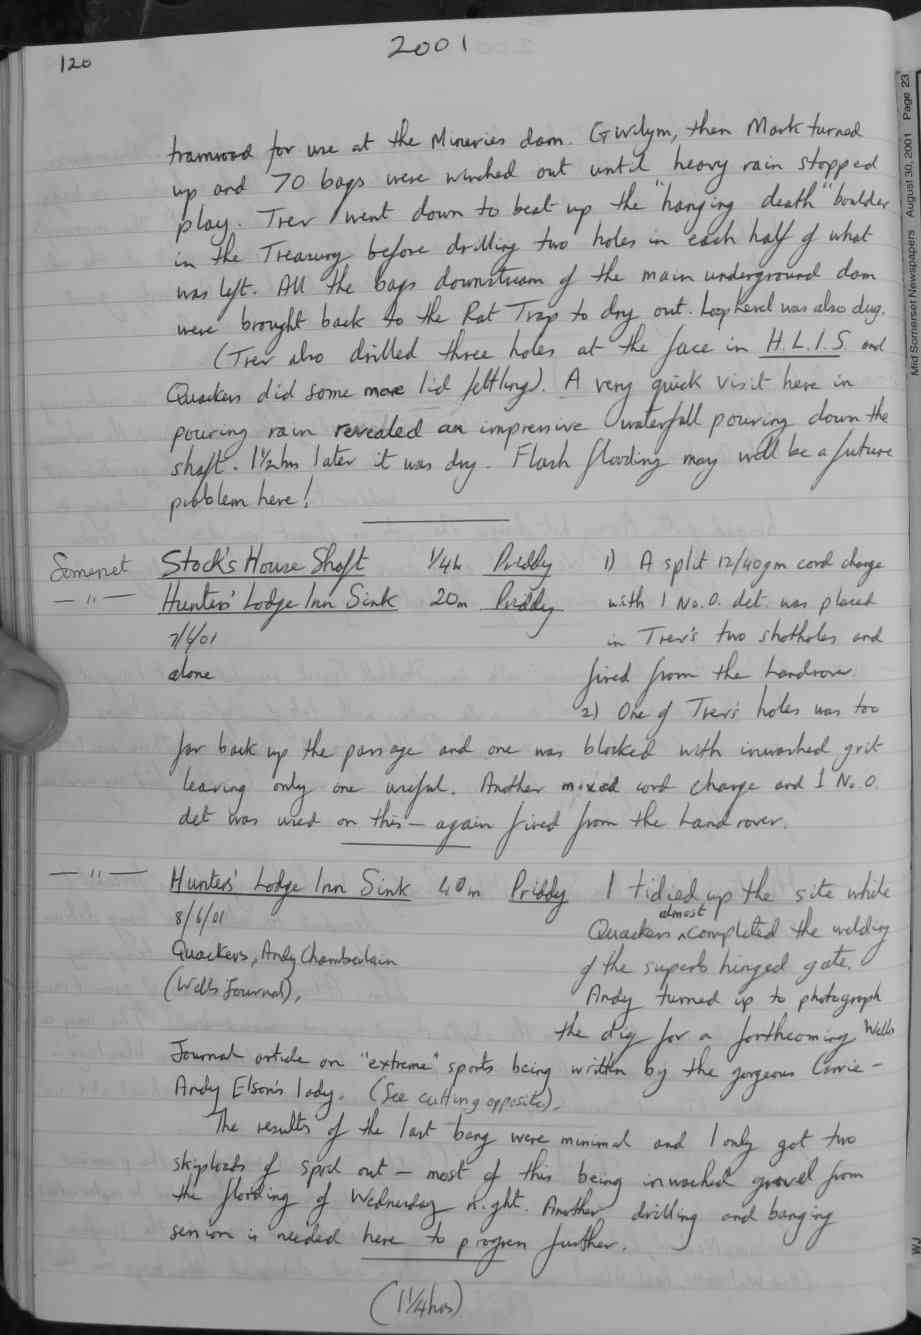 120
2001
tramrod for use at the Mineries dam. Gwilym, then Mark turned
up and 70 bags were winched out until heavy rain stopped
play. Trev went down to beat up the "hanging death" boulder
in the Treasury before drilling two holes in each half of what
was left. All the bags downstream of the main underground dam
were brought back to the Rat Trap to dry out. Loopherel was also dug.
(Trev also drilled three holes at the face in H.L.I.S. and
Quackers did some more lid fettling). A very quick visit here in
pouring rain revealed an impressive waterfall pouring down the
shaft. 1½hrs later it was dry. Flash flooding may well be a future
problem here!
Somerset Stock's House Shaft 1/4h Priddy 1) A split 12/40gm cord charge
— " — Hunters' Lodge Inn Sink 20m Priddy with 1 No.0. det. was placed
7/6/01 in Trev's two shotholes and
alone fired from the Landrover.
2) One of Trev's holes was too
far back up the passage and one was blocked with inwashed grit
leaving only one useful. Another mixed cord charge and 1 No.0.
det was used on this — again fired from the Landrover.
— " — Hunters' Lodge Inn Sink 40m Priddy I tidied up the site while
8/6/01 Quackers almost completed the welding
Quackers, Andy Chamberlain of the superb hinged gate.
(Wells Journal), Andy turned up to photograph
the dig for a forthcoming Wells
Journal article on "extreme" sports being written by the gorgeous Carrie -
Andy Elson's lady. (See cutting opposite).
The results of the last bang were minimal and I only got two
skiploads of spoil out — most of this being inwashed gravel from
the flooding of Wednesday night. Another drilling and banging
session is needed here to progress further.
(1¼hrs)
Mid Somerset Newspapers August 30, 2001 Page 23
WJ